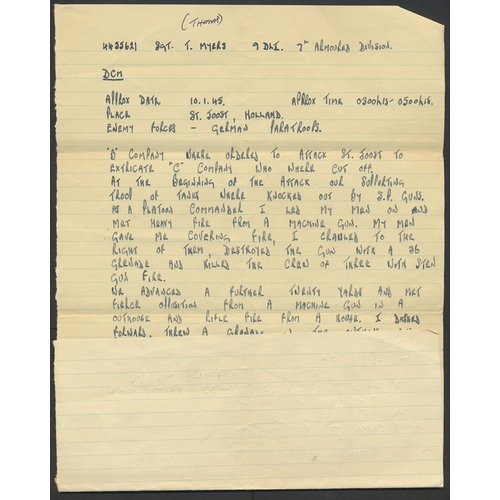 (THOMAS)
4455621 SGT. T. MYERS 9 DLI. 7TH ARMOURED DIVISION.
DCM
APPROX DATE 10.1.45. APPROX TIME 0300HRS - 0500HRS.
PLACE ST. JOOST, HOLLAND.
ENEMY FORCES - GERMAN PARATROOPS.
"D" COMPANY WHERE ORDERED TO ATTACK ST. JOOST TO
EXTRICATE "C" COMPANY WHO WHERE CUT OFF.
AT THE BEGINNING OF THE ATTACK OUR SUPPORTING
TROOP OF TANKS WHERE KNOCKED OUT BY S.P. GUNS.
AS A PLATOON COMMANDER I LED MY MEN ON AND
MET HEAVY FIRE FROM A MACHINE GUN. MY MEN
GAVE ME COVERING FIRE, I CRAWLED TO THE
RIGHT OF THEM, DESTROYED THE GUN WITH A 36
GRENADE AND KILLED THE CREW OF THREE WITH STEN
GUN FIRE.
WE ADVANCED A FURTHER TWENTY YARDS AND MET
FIERCE OPPOSITION FROM A MACHINE GUN IN A
OUTHOUSE AND RIFLE FIRE FROM A HOUSE. I DASHED
FORWARD. THREW A GRENADE IN THE